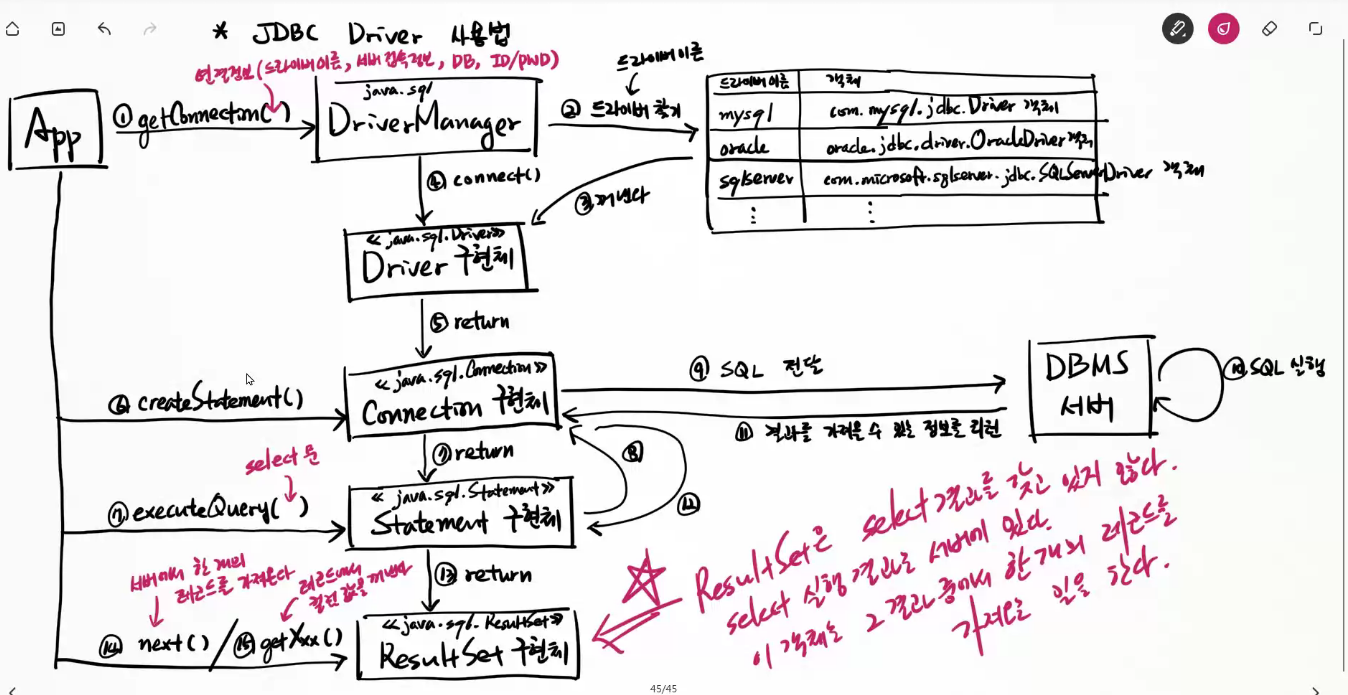 * JDBC Driver 사용법
연결정보(드라이버이름, 서버접속정보, DB, ID/PWD)
App
① getConnection( )
java.sql
DriverManager
드라이버이름
② 드라이버 찾기
드라이버이름 객체
mysql com.mysql.jdbc.Driver 객체
oracle oracle.jdbc.driver.OracleDriver 객체
sqlserver com.microsoft.sqlserver.jdbc.SQLServerDriver 객체
⋮ ⋮
③ 꺼낸다
④ connect()
≪ java.sql.Driver≫
Driver 구현체
⑤ return
⑥ createStatement()
≪ java.sql.Connection≫
Connection 구현체
⑨ SQL 전달
DBMS
서버
⑩ SQL 실행
⑪ 결과를 가져올 수 있는 정보를 리턴
⑦ return
⑧
⑫
select 문
⑦ executeQuery( )
≪ java.sql.Statement≫
Statement 구현체
⑬ return
서버에서 한 개의
레코드를 가져온다
레코드에서
컬럼 값을 꺼낸다
⑭ next() / ⑮ getXxx()
≪java.sql.ResultSet≫
ResultSet 구현체
ResultSet은 select결과를 갖고 있지 않다.
select 실행 결과는 서버에 있다.
이 객체는 그 결과 중에서 한 개의 레코드를
가져오는 일을 한다.
45/45